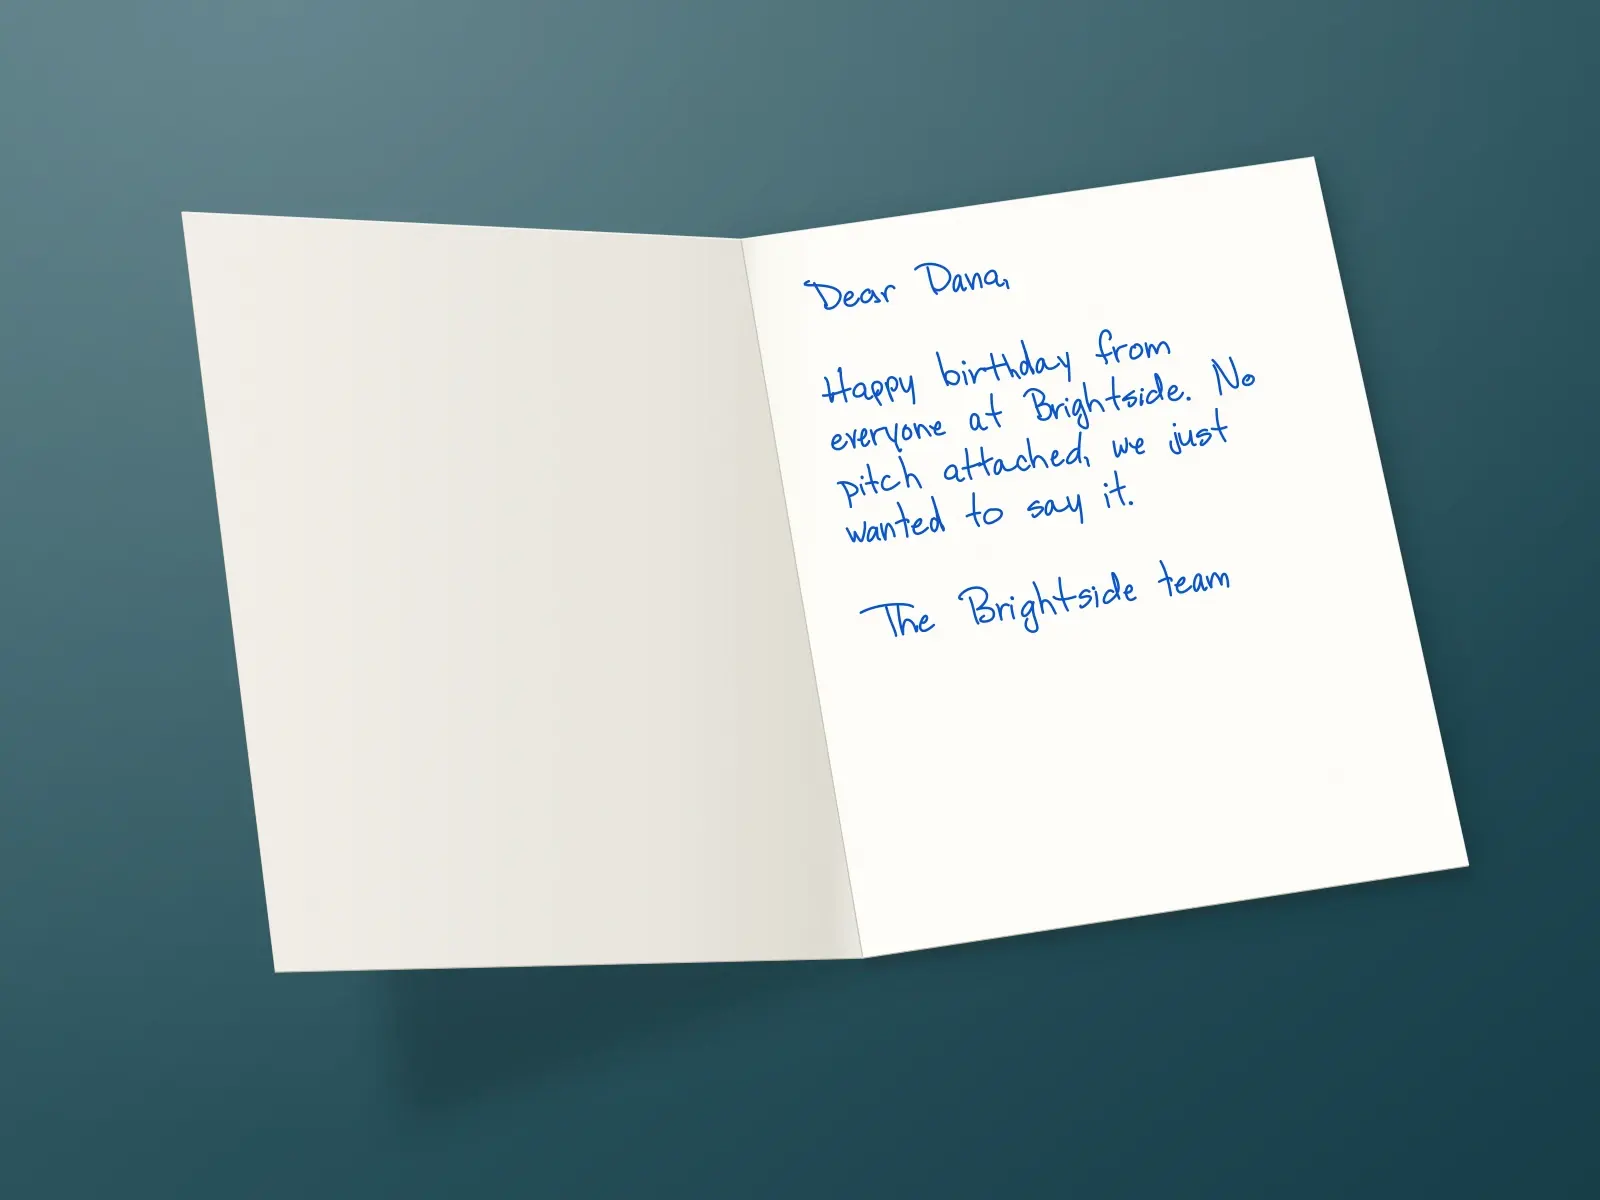 Dear Dana,
Happy birthday from
everyone at Brightside. No
pitch attached, we just
wanted to say it.
The Brightside team